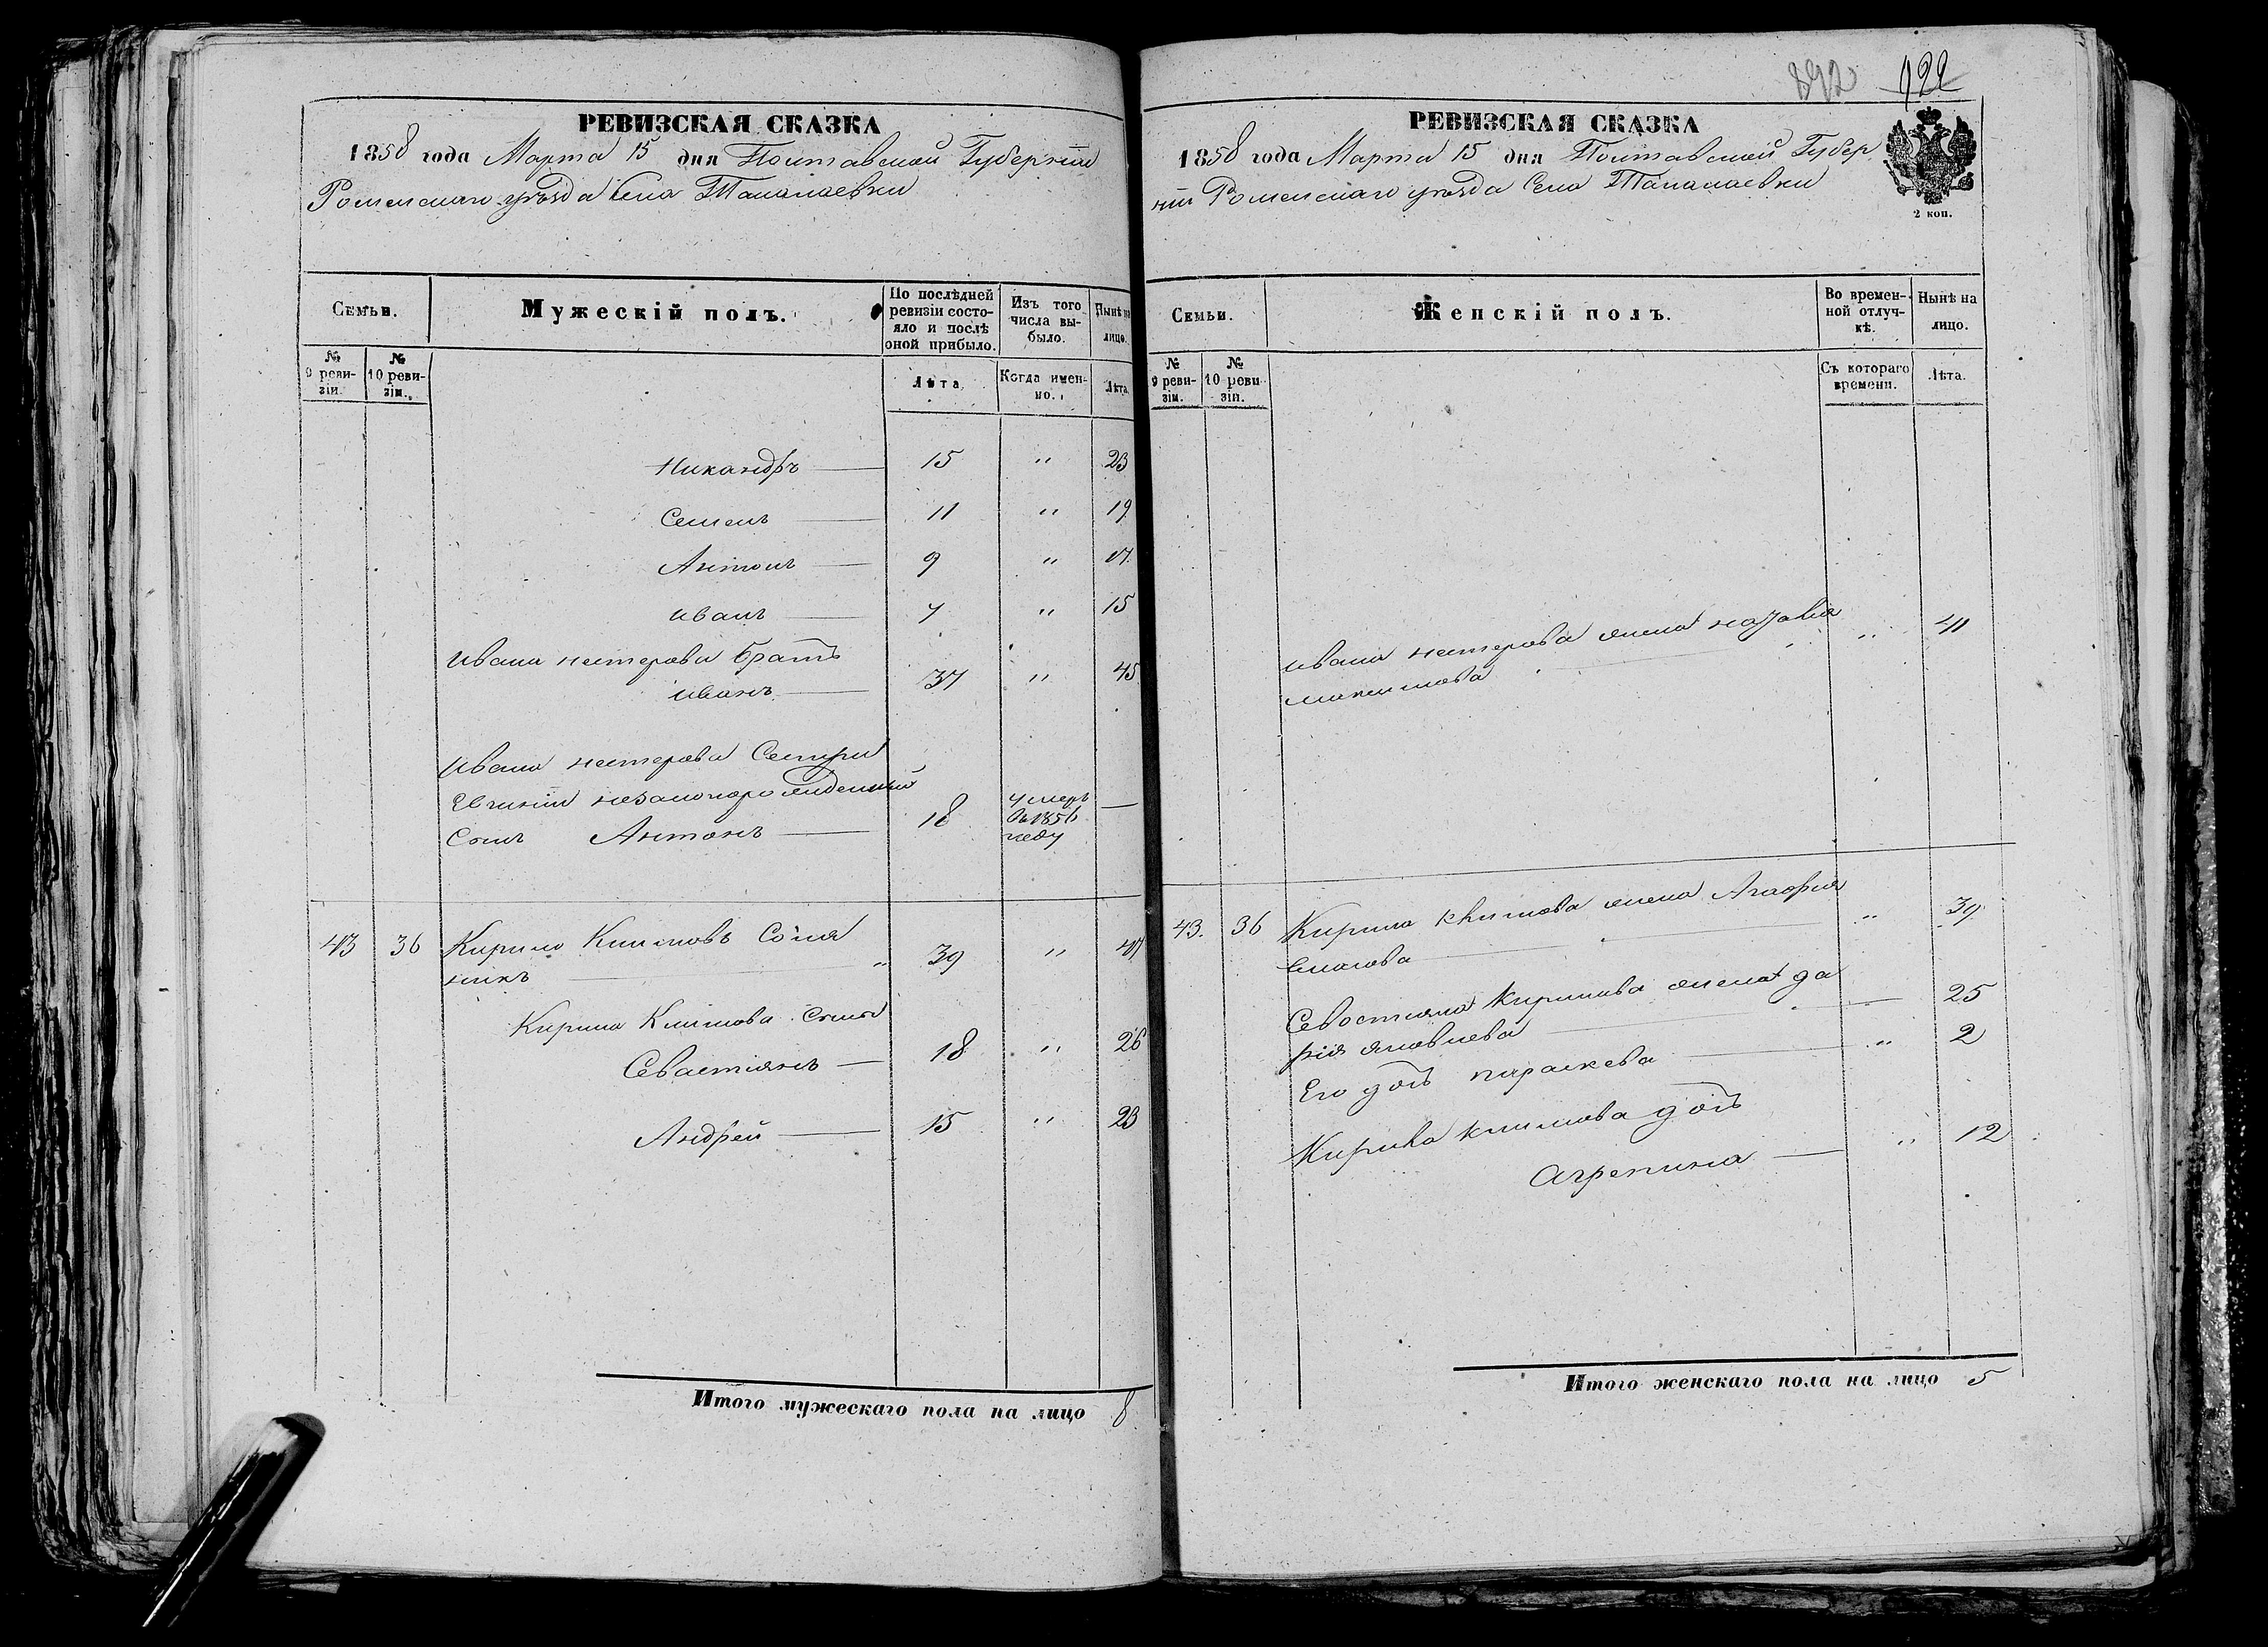 РЕВИЗСКАЯ СКАЗКА
1858 года Марта 15 дня Полтавской Губерніи
Роменскаго уѣзда Села Талалаевки
Семьи.
Мужескій полъ.
По послѣдней ревизіи состояло и послѣ оной прибыло.
Изъ того числа выбыло.
Нынѣ на лицо.
№ 9 ревизіи.
№ 10 ревизіи.
Лѣта
Когда именно.
Лѣта
Никандръ 15 " 23
Семенъ 11 " 19
Антонъ 9 " 17
Иванъ 7 " 15
Ивана нестерова братъ
Иванъ 37 " 45
Ивана нестерова Сестры
незаконорожденный
Сынъ Антонъ 18 умеръ въ 1856 году —
43 36 Кирило Климовъ Соля
никъ 39 " 47
Кирила Климова Сыны
Севастіянъ 18 " 26
Андрей 15 " 23
Итого мужескаго пола на лицо 8
892 422
РЕВИЗСКАЯ СКАЗКА
1858 года Марта 15 дня Полтавской Губер
ніи Роменскаго уѣзда Села Талалаевки
2 коп.
Семьи.
Женскій полъ.
Во временной отлучкѣ.
Нынѣ на лицо.
№ 9 ревизіи.
№ 10 ревизіи.
Съ котораго времени.
Лѣта.
Ивана нестерова жена " 41
максимова
43. 36 Кирила Климова жена Агафия " 39
Севостияна Кирилова жена да
рія яковлева " 25
Его дочь параскева " 2
Кирила климова дочь
Агрепина " 12
Итого женскаго пола на лицо 5